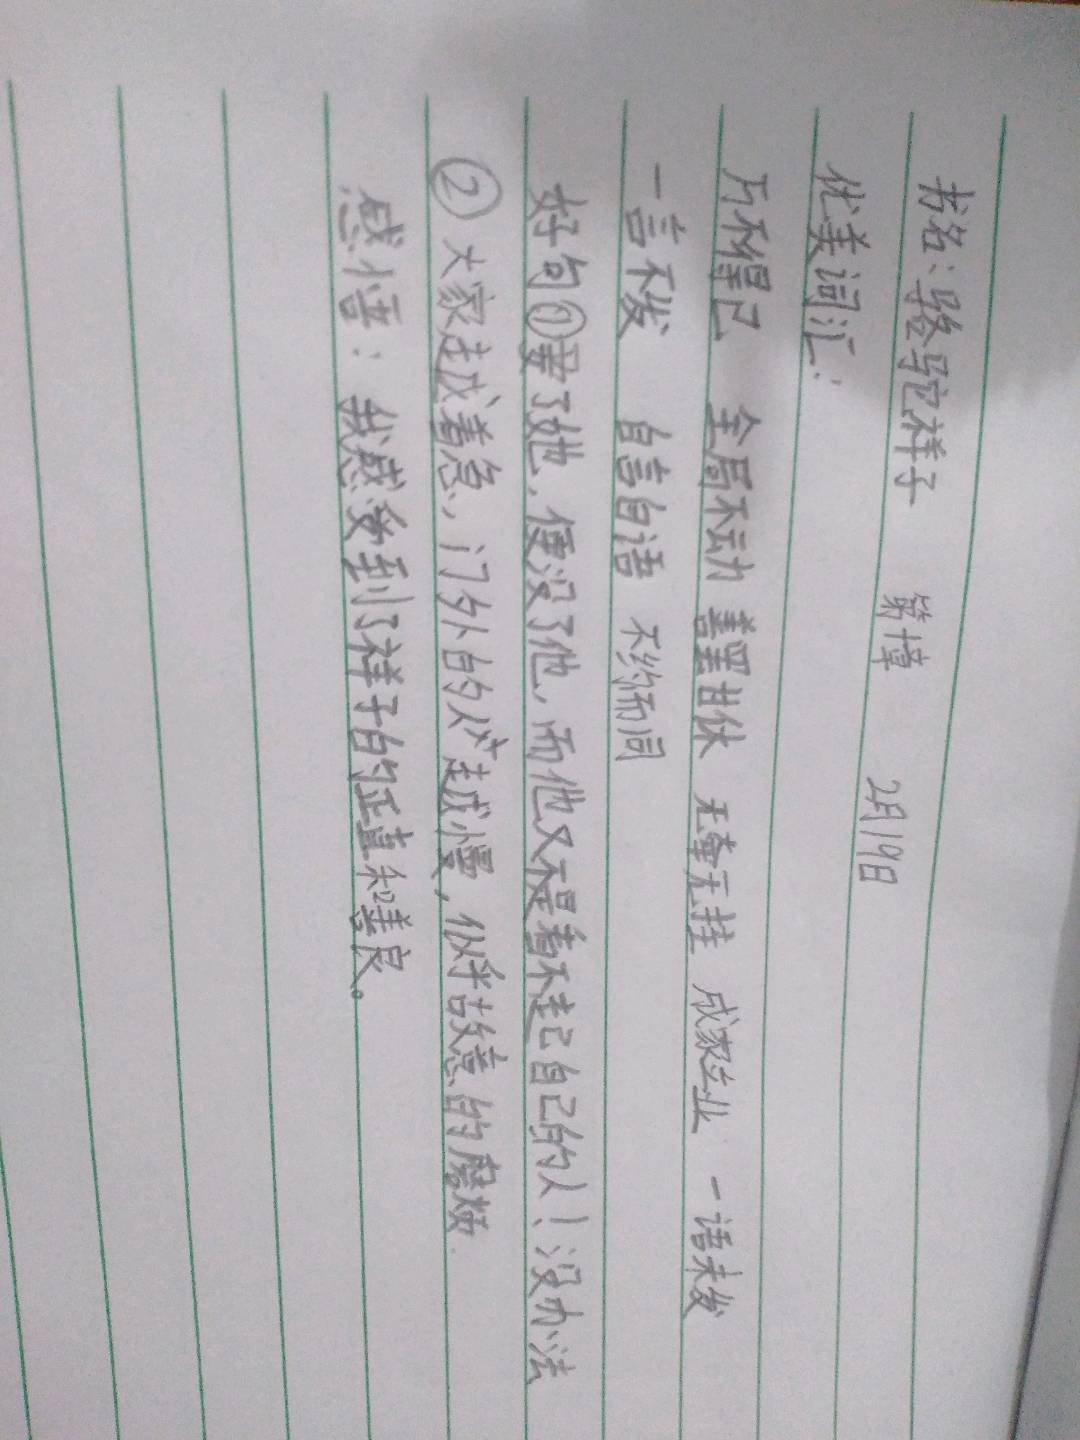 书名:骆驼祥子 第十章 2月19日
优美词汇:
万不得已 全局不动 善罢甘休 无牵无挂 成家立业 一语未发
一言不发 自言自语 不约而同
好句①要了她,便没了他,而他又不是看不起自己的人!没办法
②大家越着急,门外的人越慢,似乎故意的磨烦
感悟:我感受到了祥子的正直和善良。